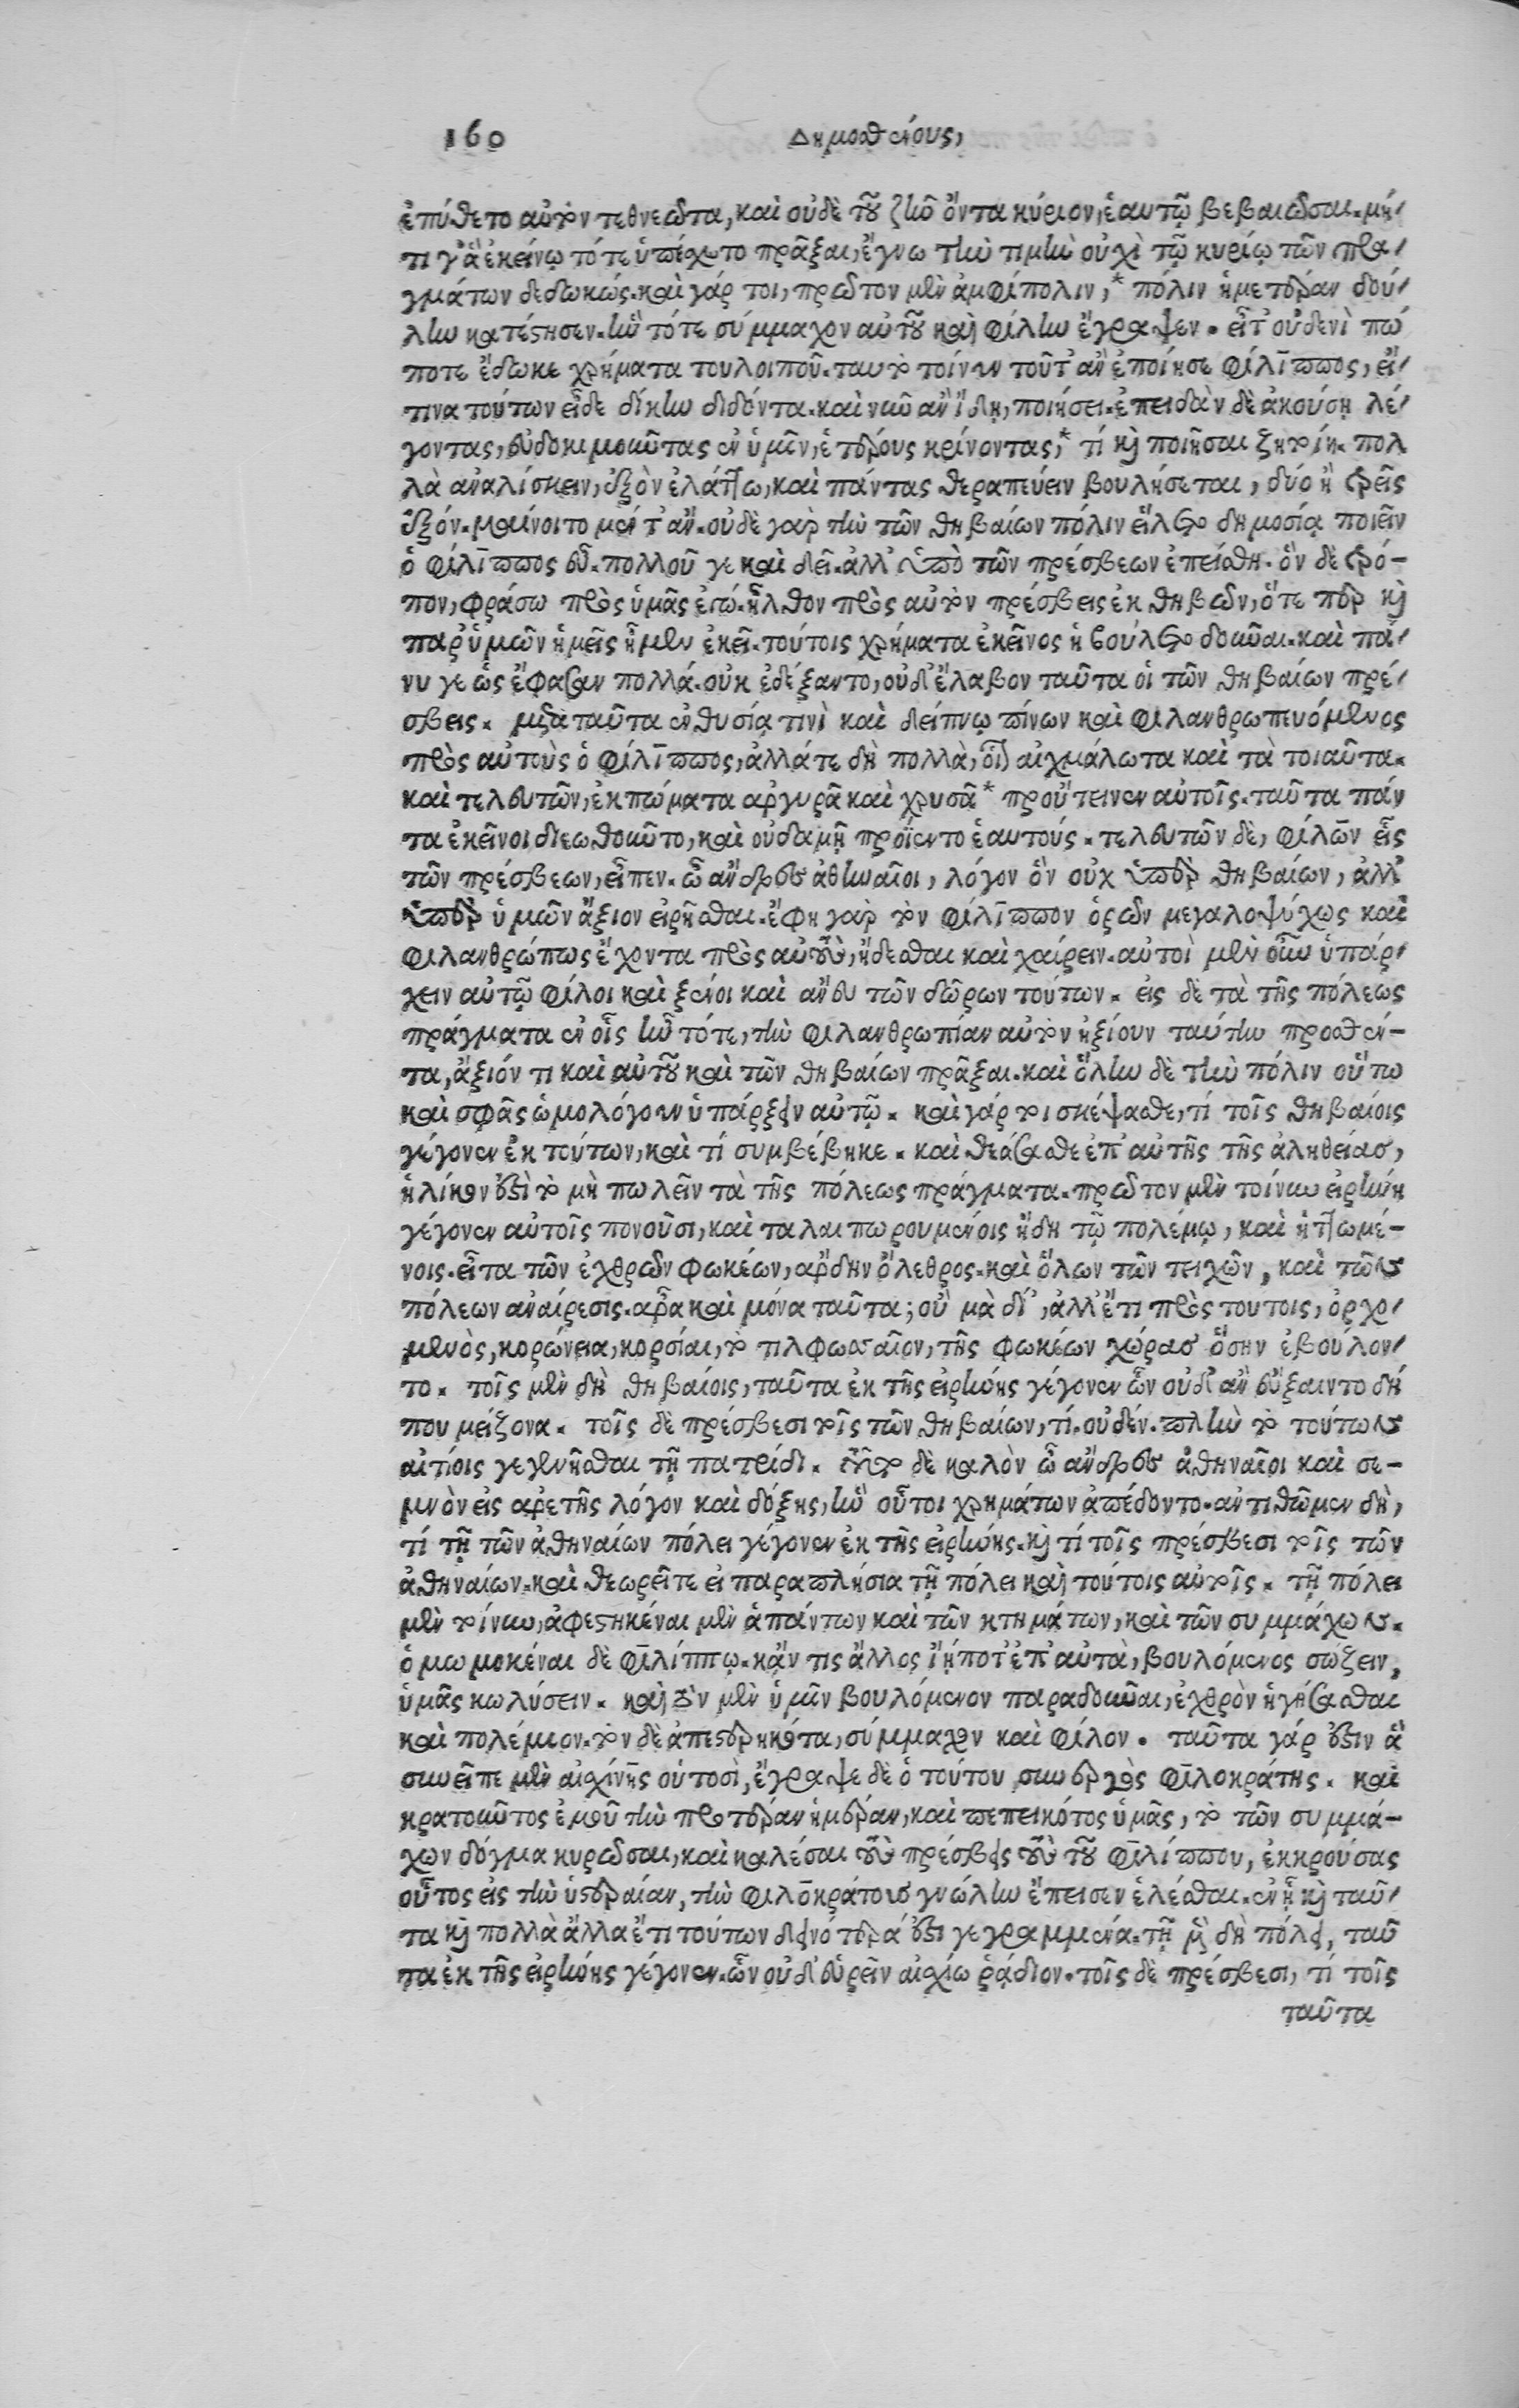 160 Δημοσθένους,
ἐπύθετο αὐτὸν τεθνεῶτα, καὶ οὐδὲ τοῦ ζῆν ὄντα κύριον, ἑαυτῷ βεβαιῶσαι. μή/
τι γ᾽ ἃ ἐκείνῳ τότε ὑπέσχετο πρᾶξαι, ἔγνω τὴν τιμὴν οὐχὶ τῷ κυρίῳ τῶν πρα/
γμάτων δεδωκώς. καὶ γάρ τοι, πρῶτον μὲν ἀμφίπολιν,* πόλιν ἡμετέραν δού/
λην κατέστησεν. ἣν τότε σύμμαχον αὐτοῦ καὶ φίλην ἔγραψεν. εἶτ᾽ οὐδενὶ πώ
ποτε ἔδωκε χρήματα τουλοιποῦ. ταυτὸ τοίνυν τοῦτ᾽ ἂν ἐποίησε φίλιππος, εἴ/
τινα τούτων εἶδε δίκην διδόντα. καὶ νῦν ἂν ἴδῃ, ποιήσει. ἐπειδὰν δὲ ἀκούσῃ λέ/
γοντας, εὐδοκιμοῦντας ἐν ὑμῖν, ἑτέρους κρίνοντας,* τί καὶ ποιῆσαι ζητοίη. πολ
λὰ ἀναλίσκειν, ἐξὸν ἐλάττω, καὶ πάντας θεραπεύειν βουλήσεται, δύο ἢ τρεῖς
ἐξόν. μαίνοιτο μέντ᾽ ἄν. οὐδὲ γὰρ τὴν τῶν θηβαίων πόλιν εἵλετο δημοσίᾳ ποιεῖν
ὁ φίλιππος εὖ. πολλοῦ γε καὶ δεῖ. ἀλλ᾽ ὑπὸ τῶν πρέσβεων ἐπείσθη. ὃν δὲ τρό-
πον, φράσω πρὸς ὑμᾶς ἐγώ. ἦλθον πρὸς αὐτὸν πρέσβεις ἐκ θηβῶν, ὅτε περ καὶ
παρ᾽ ὑμῶν ἡμεῖς ἦμεν ἐκεῖ. τούτοις χρήματα ἐκεῖνος ἠβούλετο δοῦναι. καὶ πά/
νυ γε ὡς ἔφασαν πολλά. οὐκ ἐδέξαντο, οὐδ᾽ ἔλαβον ταῦτα οἱ τῶν θηβαίων πρέ/
σβεις. μετὰ ταῦτα ἐν θυσίᾳ τινὶ καὶ δείπνῳ πίνων καὶ φιλανθρωπευόμενος
πρὸς αὐτοὺς ὁ φίλιππος, ἀλλάτε δὴ πολλὰ, οἷον αἰχμάλωτα καὶ τὰ τοιαῦτα.
καὶ τελευτῶν, ἐκπώματα ἀργυρᾶ καὶ χρυσᾶ* προὔτεινεν αὐτοῖς. ταῦτα πάν
τα ἐκεῖνοι διεωθοῦντο, καὶ οὐδαμῇ προΐεντο ἑαυτούς. τελευτῶν δὲ, φίλων εἷς
τῶν πρέσβεων, εἶπεν. ὦ ἄνδρες ἀθηναῖοι, λόγον ὃν οὐχ ὑπὲρ θηβαίων, ἀλλ᾽
ὑπὲρ ὑμῶν ἄξιον εἰρῆσθαι. ἔφη γὰρ τὸν φίλιππον ὁρῶν μεγαλοψύχως καὶ
φιλανθρώπως ἔχοντα πρὸς αὐτοὺς, ἥδεσθαι καὶ χαίρειν. αὐτοὶ μὲν οὖν ὑπάρ/
χειν αὐτῷ φίλοι καὶ ξένοι καὶ ἄνευ τῶν δώρων τούτων. εἰς δὲ τὰ τῆς πόλεως
πράγματα ἐν οἷς ἦν τότε, τὴν φιλανθρωπίαν αὐτὸν ἠξίουν ταύτην προσθέν-
τα, ἄξιόν τι καὶ αὐτοῦ καὶ τῶν θηβαίων πρᾶξαι. καὶ ὅλην δὲ τὴν πόλιν οὕτω
καὶ σφᾶς ὡμολόγουν ὑπάρξειν αὐτῷ. καὶ γάρ τοι σκέψασθε, τί τοῖς θηβαίοις
γέγονεν ἐκ τούτων, καὶ τί συμβέβηκε. καὶ θεάσασθε ἐπ᾽ αὐτῆς τῆς ἀληθείας,
ἡλίκον ἐστὶ τὸ μὴ πωλεῖν τὰ τῆς πόλεως πράγματα. πρῶτον μὲν τοίνυν εἰρήνη
γέγονεν αὐτοῖς πονοῦσι, καὶ ταλαιπωρουμένοις ἤδη τῷ πολέμῳ, καὶ ἡττωμέ-
νοις. εἶτα τῶν ἐχθρῶν φωκέων, ἄρδην ὄλεθρος. καὶ ὅλων τῶν τειχῶν, καὶ τῶν
πόλεων ἀναίρεσις. ἆρα καὶ μόνα ταῦτα; οὐ μὰ δί᾽, ἀλλ᾽ ἔτι πρὸς τουτοις, ὀρχο/
μενὸς, κορώνεια, κορσίαι, τὸ τιλφωσσαῖον, τῆς φωκέων χώρας ὅσην ἐβούλον/
το. τοῖς μὲν δὴ θηβαίοις, ταῦτα ἐκ τῆς εἰρήνης γέγονεν ὧν οὐδ᾽ ἂν εὔξαιντο δή
που μείζονα. τοῖς δὲ πρέσβεσι τοῖς τῶν θηβαίων, τί. οὐδέν. πλὴν τὸ τούτων
αἰτίοις γεγενῆσθαι τῇ πατρίδι. τοῦτο δὲ καλὸν ὦ ἄνδρες ἀθηναῖοι καὶ σε-
μνὸν εἰς ἀρετῆς λόγον καὶ δόξης, ἣν οὗτοι χρημάτων ἀπέδοντο. ἀντιθῶμεν δὴ,
τί τῇ τῶν ἀθηναίων πόλει γέγονεν ἐκ τῆς εἰρήνης. καὶ τί τοῖς πρέσβεσι τοῖς τῶν
ἀθηναίων. καὶ θεωρεῖτε εἰ παραπλήσια τῇ πόλει καὶ τούτοις αὐτοῖς. τῇ πόλει
μὲν τοίνυν, ἀφεστηκέναι μὲν ἁπάντων καὶ τῶν κτημάτων, καὶ τῶν συμμάχων.
ὀμωμοκέναι δὲ φιλίππῳ. κἄν τις ἄλλος ἴῃ ποτ᾽ ἐπ᾽ αὐτὰ, βουλόμενος σώζειν,
ὑμᾶς κωλύσειν. καὶ τὸν μὲν ὑμῖν βουλόμενον παραδοῦναι, ἐχθρὸν ἡγήσασθαι
καὶ πολέμιον. τὸν δὲ ἀπεστερηκότα, σύμμαχον καὶ φίλον. ταῦτα γάρ ἐστιν ἃ
συνεῖπε μὲν αἰσχίνης οὑτοσὶ, ἔγραψε δὲ ὁ τούτου συνεργὸς φιλοκράτης. καὶ
κρατοῦντος ἐμοῦ τὴν προτέραν ἡμέραν, καὶ πεπεικότος ὑμᾶς, τὸ τῶν συμμά-
χων δόγμα κυρῶσαι, καὶ καλέσαι τοὺς πρέσβεις τοὺς τοῦ φιλίππου, ἐκκρούσας
οὗτος εἰς τὴν ὑστεραίαν, τὴν φιλοκράτους γνώμην ἔπεισεν ἑλέσθαι. ἐν ᾗ καὶ ταῦ/
τα καὶ πολλὰ ἄλλα ἔτι τούτων δεινότερά ἐστι γεγραμμένα. τῇ μὲν δὴ πόλει, ταῦ
τα ἐκ τῆς εἰρήνης γέγονεν. ὧν οὐδ᾽ εὑρεῖν αἰσχίω ῥᾴδιον. τοῖς δὲ πρέσβεσι, τί τοῖς
ταῦτα